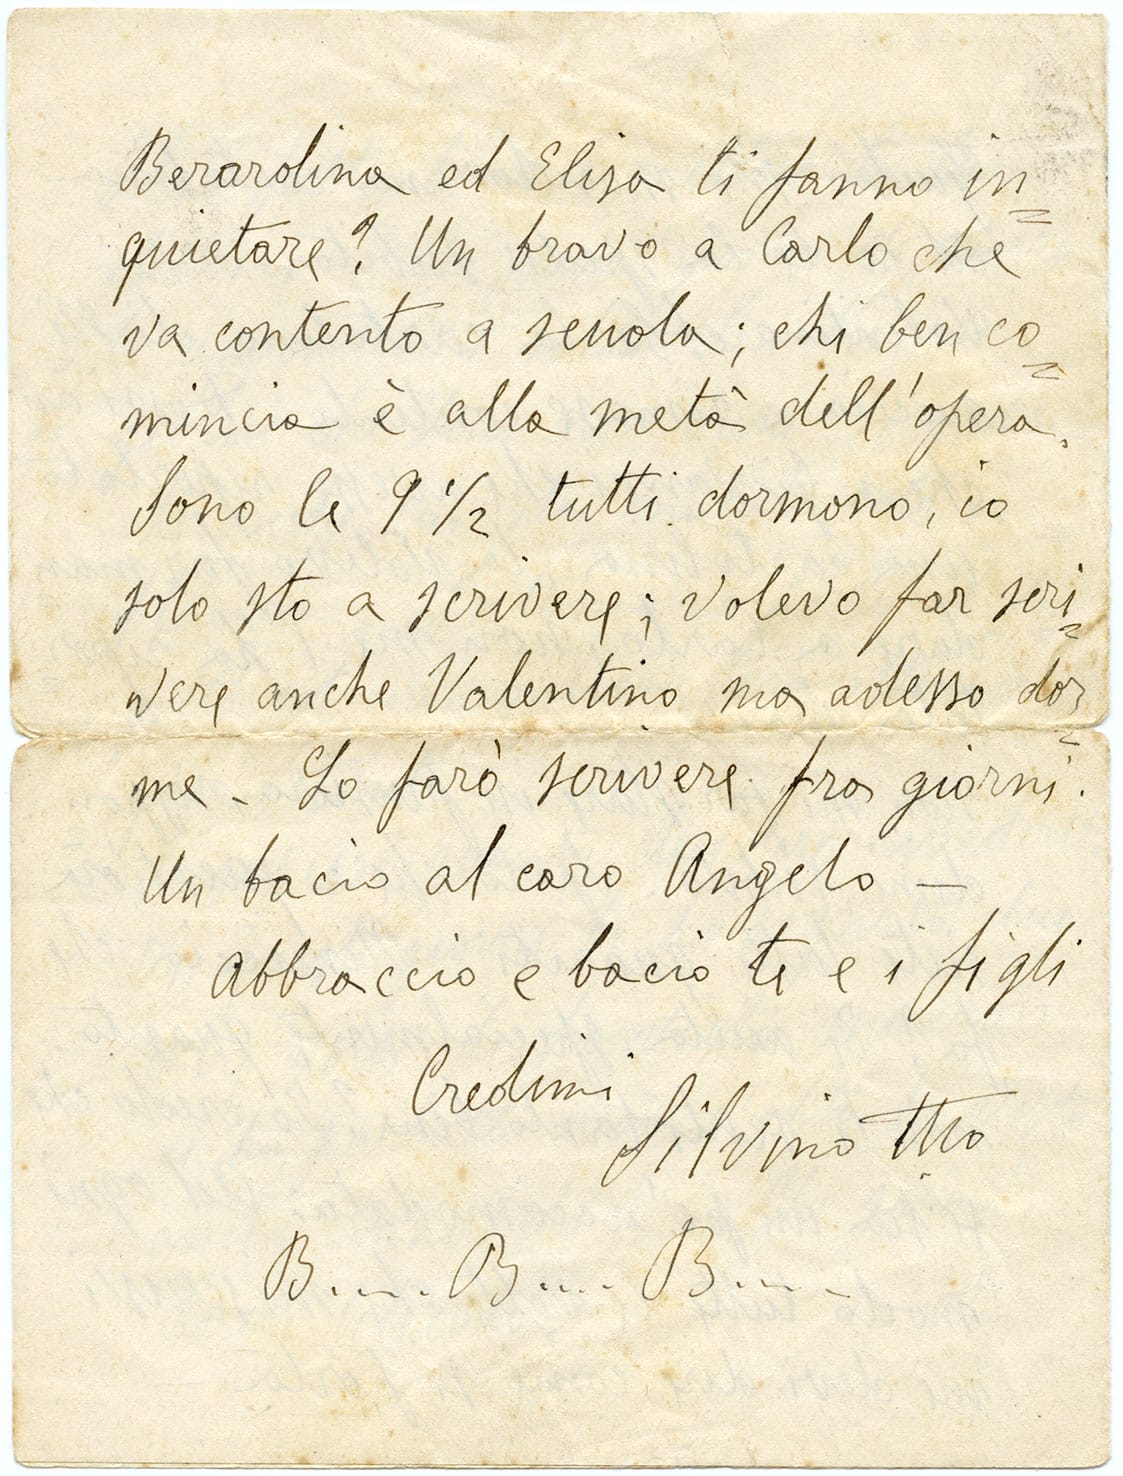 Berardina ed Elisa ti fanno in=
quietare? Un bravo a Carlo che
va contento a scuola; chi ben co=
mincia è alla metà dell'opera.
Sono le 9 1/2 tutti dormono, io
solo sto a scrivere; volevo far scri=
vere anche Valentino ma adesso dor=
me - Lo farò scrivere fra giorni.
Un bacio al caro Angelo —
Abbraccio e bacio te e i figli
Credimi
Silvino tuo
B..... B.... B.....